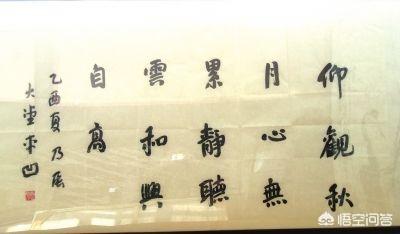 仰觀秋
月心無
累靜聽
雲和興
自高
乙酉夏乃
平凹
悟空问答